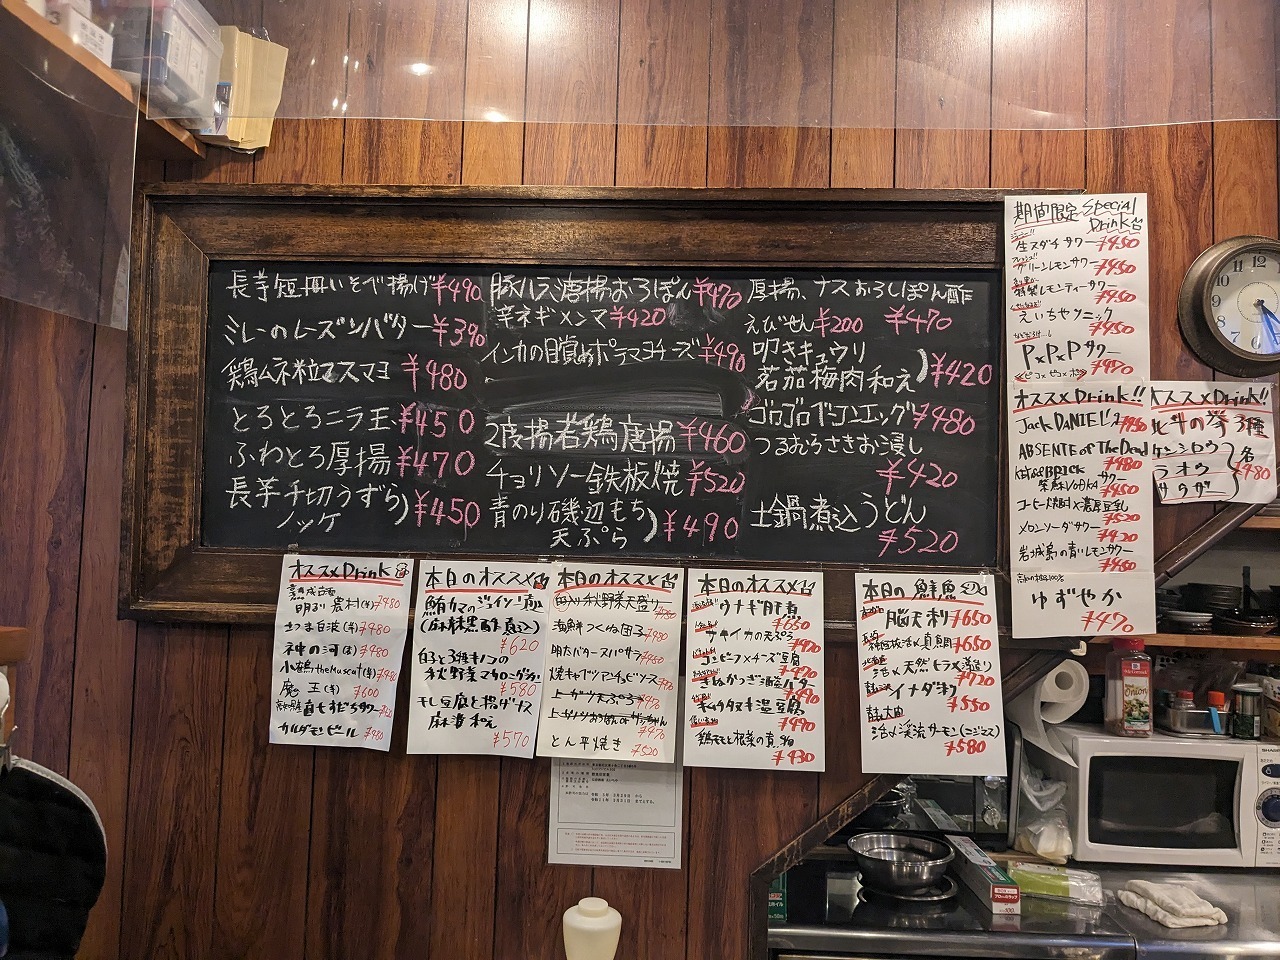 長芋短冊いそべ揚げ ¥490
ミレーのレーズンバター ¥390
鶏ムネ粒マスマヨ ¥480
とろとろニラ玉 ¥450
ふわとろ厚揚 ¥470
長芋千切うずら
ノッケ ¥450
豚ハラミ唐揚おろぽん ¥470
辛ネギメンマ ¥420
インカの目覚めポテマヨチーズ ¥490
2度揚若鶏唐揚 ¥460
チョリソー鉄板焼 ¥520
青のり磯辺もち
天ぷら ¥490
厚揚、ナスおろしぽん酢
¥470
えびせん ¥200
叩きキュウリ
若茄梅肉和え ¥420
ゴロゴロベーコンエッグ ¥480
つるむらさきお浸し
¥420
土鍋煮込うどん
¥520
期間限定 Special
Drink
生スダチサワー ¥450
グリーンレモンサワー
¥450
特製レモンティーサワー
¥450
えいちゃソニック
¥450
P×P×Pサワー
¥470
オススメDrink!!
Jack DANIEL
ABSENTE of The Dead
¥480
紫蘇VodKaサワー
¥450
¥520
メロンソーダサワー
¥420
岩城島の青いレモンサワー
¥450
ゆずやか
¥470
オススメDrink!!
北斗の拳3種
ケンシロウ
ラオウ
サウザー
各
¥480
オススメDrink
明るい農村(芋) ¥480
さつま白波(芋) ¥480
神の河(麦) ¥480
小鶴the Muscat(芋)
魔王(芋) ¥600
カルダモンビール
本日のオススメ
鮪カマのジョイント煮
(麻辣黒酢煮込)
¥620
白子と3種キノコの
秋野菜マカロニグラタン
¥580
干し豆腐と揚げナス
麻酱和え
¥570
本日のオススメ
海鮮つくね団子
明太バタースパサラ ¥480
焼キャベツアンチョビソース
¥470
とん平焼き ¥520
本日のオススメ
ウナギ肝煮
¥650
サキイカの天ぷら
¥420
コンビーフ×チーズ豆腐
¥490
きぬかつぎ酒盗バター
¥490
温豆腐
¥490
鶏モモと根菜の煮物
¥430
本日の鮮魚
脳天刺 ¥650
神経抜活〆真鯛 ¥650
北海道
活〆天然ヒラメ薄造り
¥720
イナダ刺
¥550
活〆渓流サーモン(ニジマス)
¥580
Onion